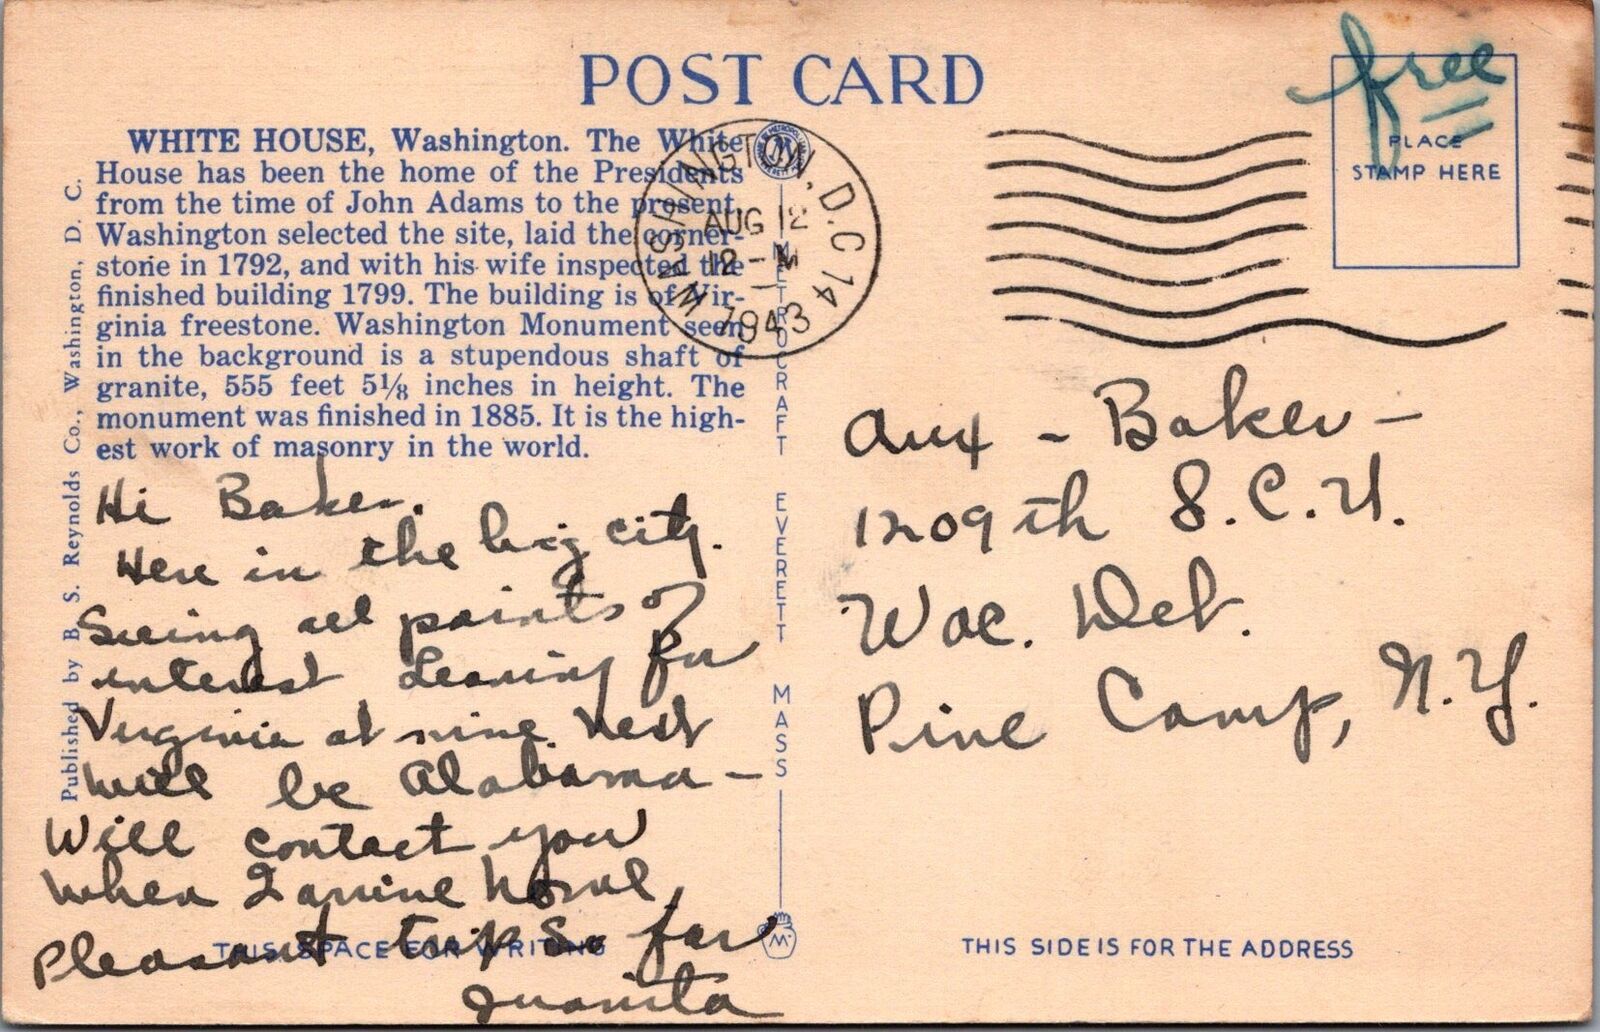 POST CARD
free
PLACE
STAMP HERE
WHITE HOUSE, Washington. The White
House has been the home of the Presidents
from the time of John Adams to the present.
Washington selected the site, laid the corner-
stone in 1792, and with his wife inspected the
finished building 1799. The building is of Vir-
ginia freestone. Washington Monument seen
in the background is a stupendous shaft of
granite, 555 feet 5⅛ inches in height. The
monument was finished in 1885. It is the high-
est work of masonry in the world.
Published by B. S. Reynolds Co., Washington, D. C.
WASHINGTON, D.C. 14
AUG 12
12-M
1943
METROCRAFT EVERETT MASS
Hi Baker.
Here in the big city.
Seeing all points of
interest Leaving for
Virginia at nine. Next
will be Alabama -
Will contact you
when I arrive home.
Pleasant trip so far
Juanita
THIS SPACE FOR WRITING
M
Aux - Baker -
1209th S.C.U.
Wac. Det.
Pine Camp, N.Y.
THIS SIDE IS FOR THE ADDRESS